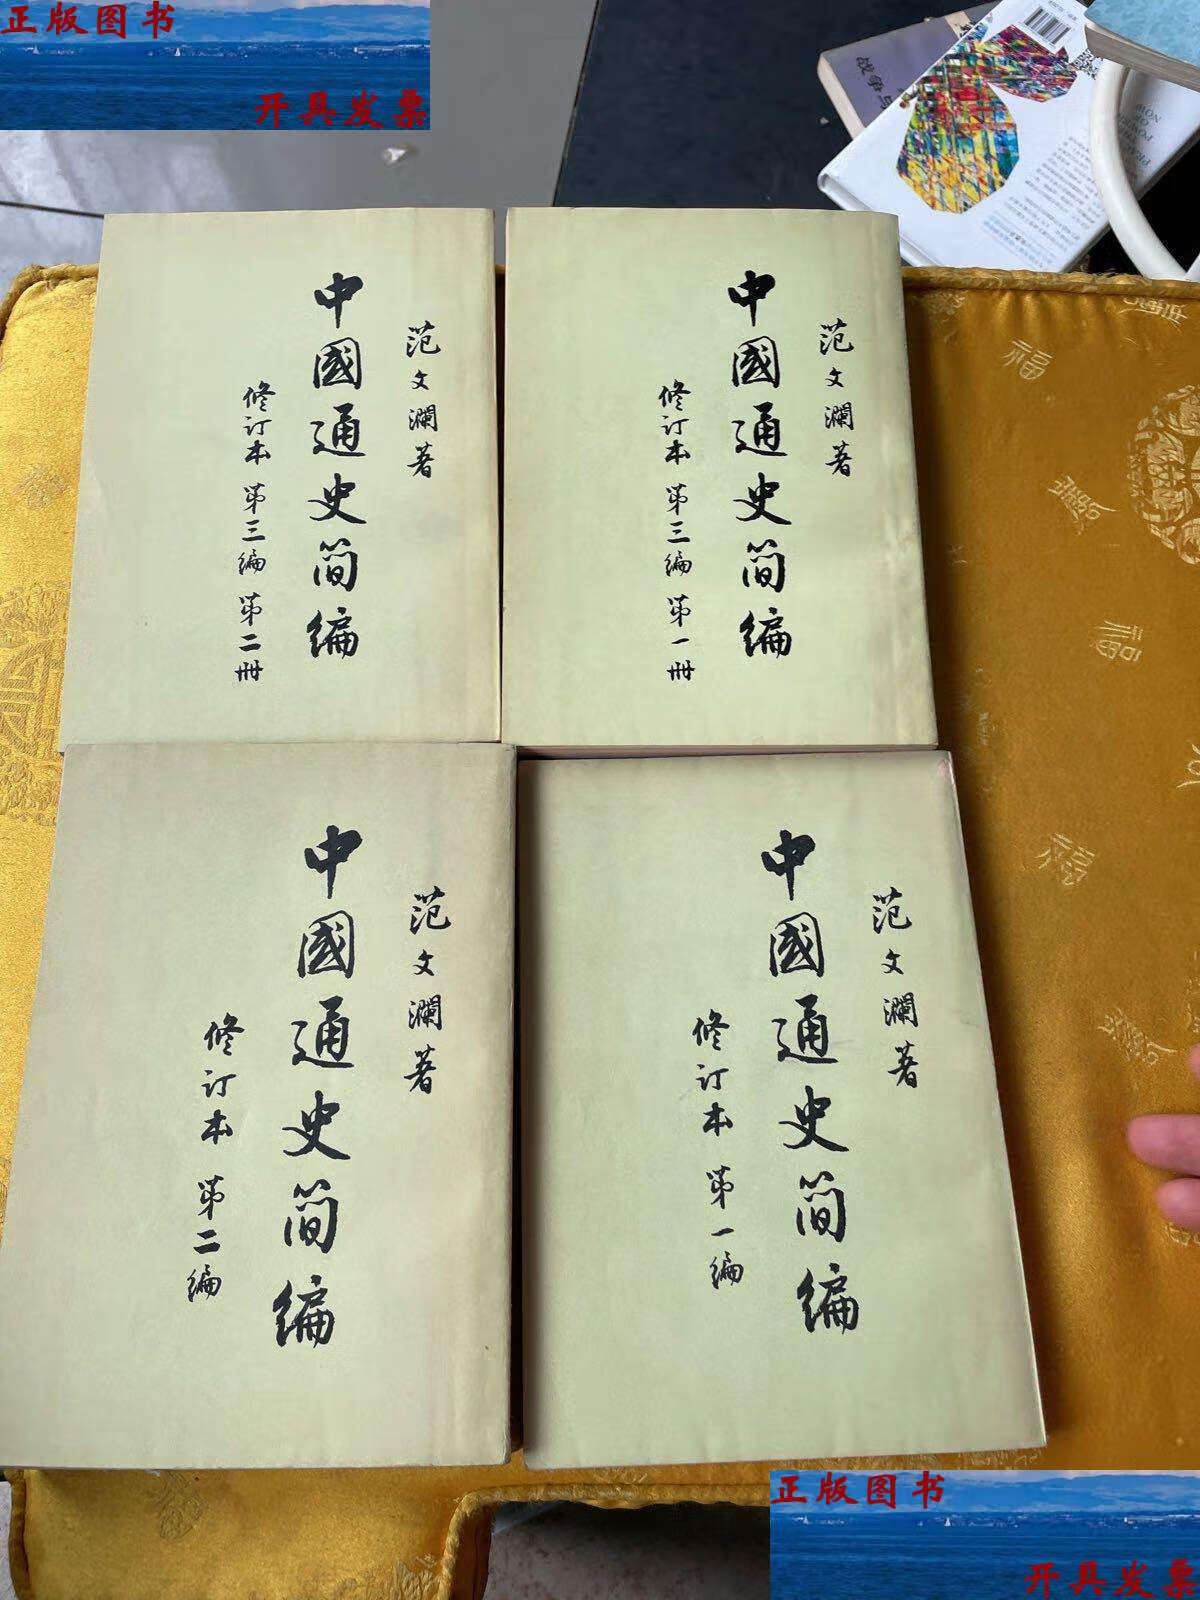 正版图书
开具发票
战争与
范文瀾著
中國通史简编
修订本 第三编 第二册
范文瀾著
中國通史简编
修订本 第三编 第一册
范文瀾著
中國通史简编
修订本 第二编
范文瀾著
中國通史简编
修订本 第一编
福
福
福
正版图书
开具发票